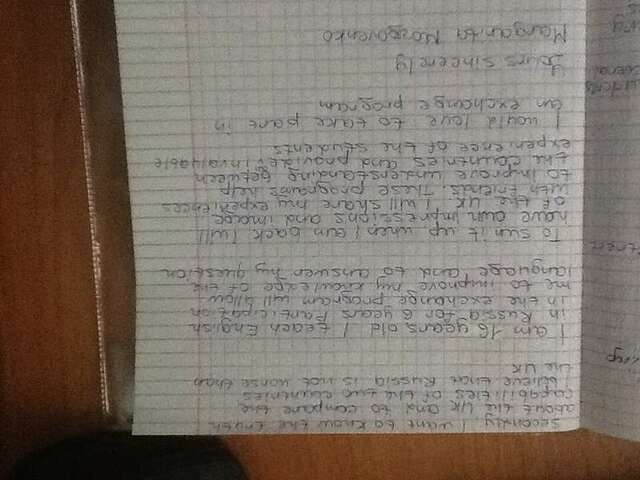 Secondly I want to know the truth
about the UK and to compare the
capabilities of the two countries
I believe that Russia is not worse than
the UK
I am 16 years old I teach English
in Russia for 6 years Participation
in the exchange program will allow
me to improve my knowledge of the
language and to answer my question
To sum it up when I am back I will
have own impressions and image
of the UK I will share my experiences
with friends. These programs help
to improve understanding between
the countries and provide invaluable
experience of the students
I would love to take part in
an exchange program
Yours sincerely
Margarita